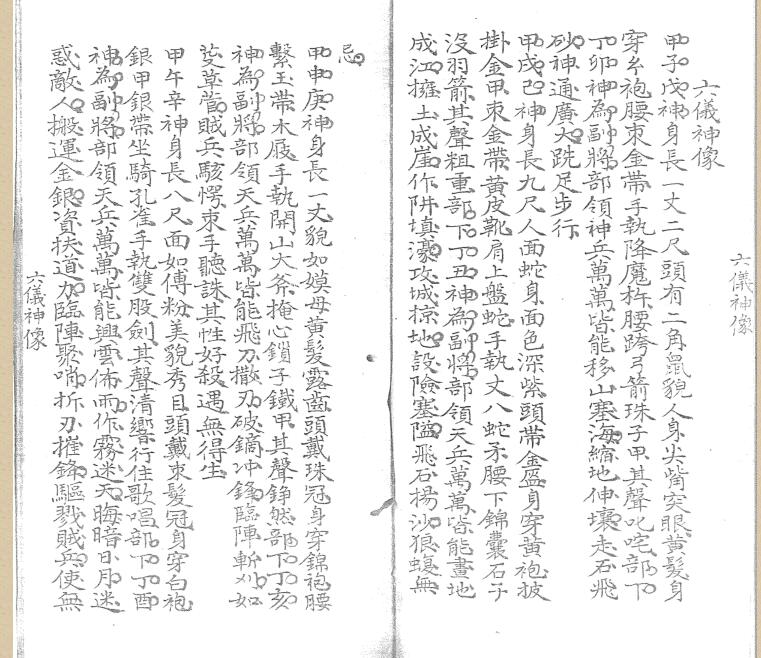 六儀神像
甲子戊神身長一丈二尺頭有二角鼠貌人身尖嘴突眼黄髮身
穿幺袍腰束金帶手執降魔杵腰跨弓箭珠子甲其聲叱咤部下
丁卯神為副將部領神兵萬萬皆能移山塞海縮地伸壤走石飛
砂神通廣大跣足步行
甲戌己神身長九尺人面蛇身面色深紫頭帶金盔身穿黄袍披
掛金甲束金帶黄皮靴肩上盤蛇手執丈八蛇矛腰下錦囊石子
没羽箭其聲粗重部下丁丑神為副將部領天兵萬萬皆能畫地
成江擁土成崖作阱填濠攻城掠地設險塞隘飛石揚沙狼蝮無
六儀神像
忌
甲申庚神身長一丈貌如嫫母黄髮露齒頭戴珠冠身穿錦袍腰
繫玉帶木屐手執開山大斧掩心鎖子鐵甲其聲錚然部下丁亥
神為副將部領天兵萬萬皆能飛刀撒刃破鏑冲鋒臨陣斬刈如
芟草營賊兵駭愕束手聽誅其性好殺遇無得生
甲午辛神身長八尺面如傅粉美貌秀目頭戴束髮冠身穿白袍
銀甲銀帶坐騎孔雀手執雙股劍其聲清響行住歌唱部下丁酉
神為副將部領天兵萬萬皆能興雲佈雨作霧迷天晦暗日月迷
惑敵人搬運金銀資扶道力臨陣聚哨折刀摧鋒驅戮賊兵使無
六儀神像